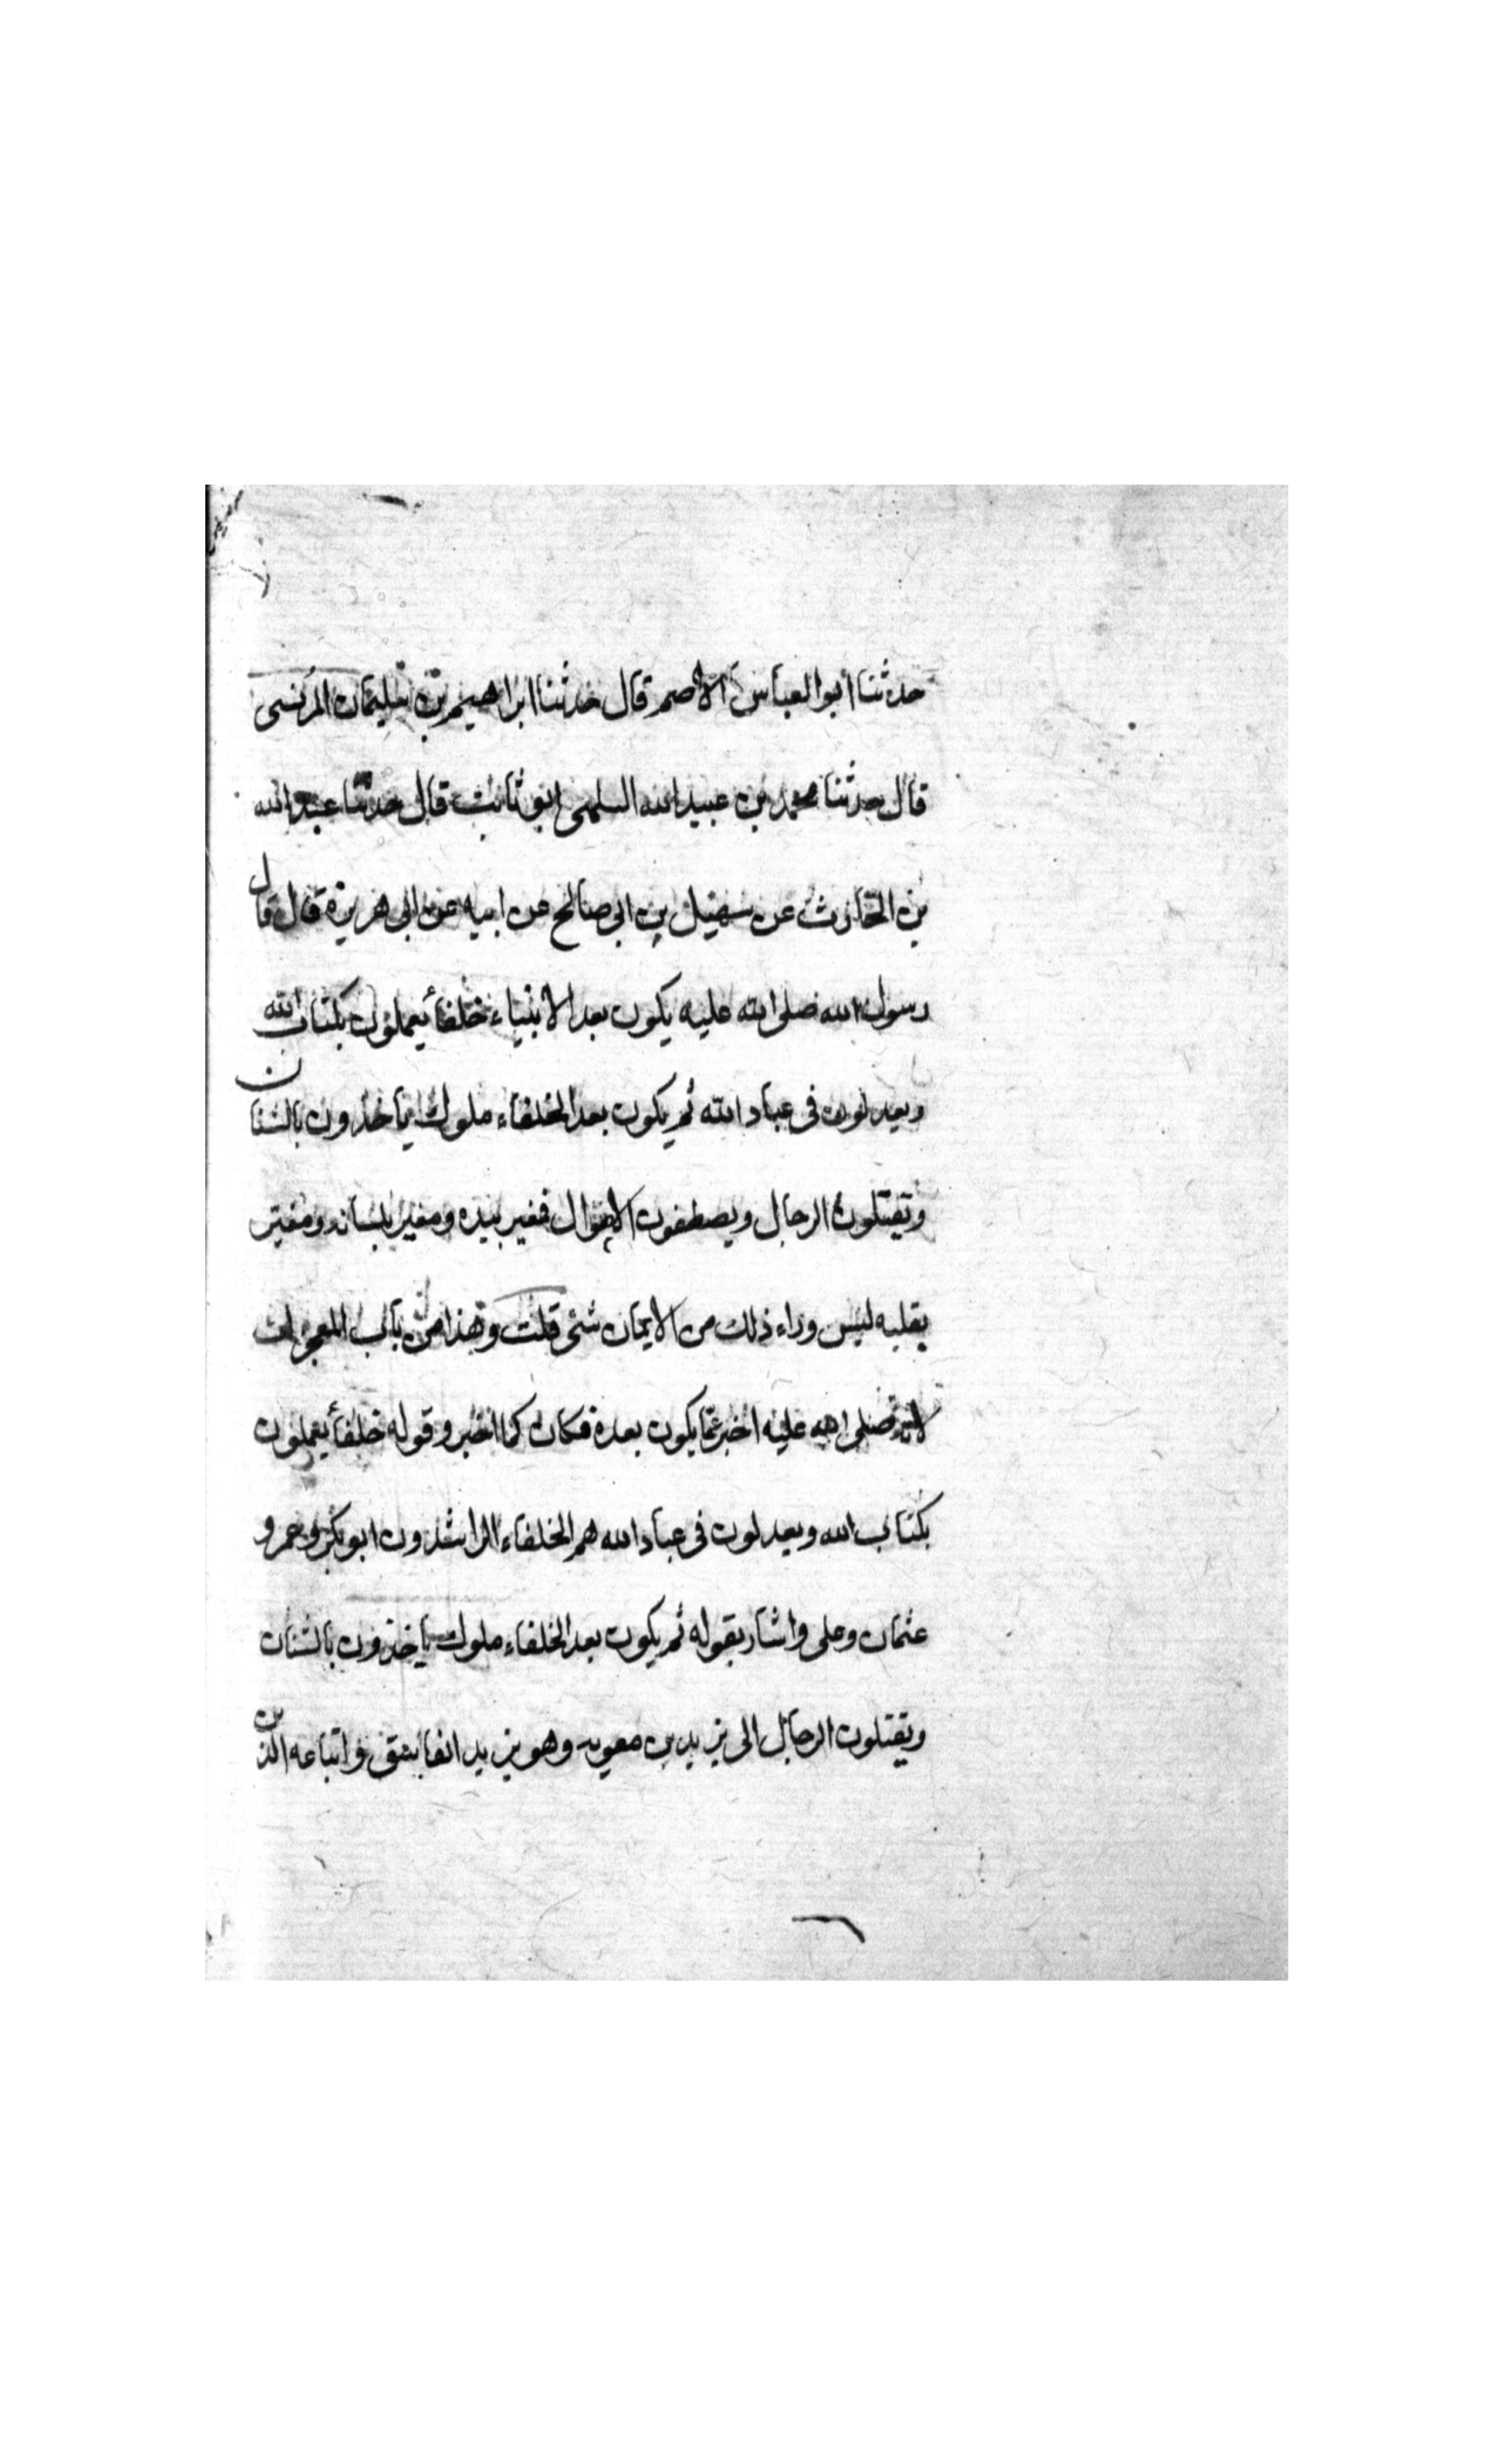 حدثنا أبو العباس الأصم قال حدثنا ابراهيم بن سليمان البرنسى
قال حدثنا محمد بن عبيد الله السلمى ابو ثابت قال حدثنا عبد الله
بن الحارث عن سهيل بن ابى صالح عن ابيه عن ابى هريرة قال قال
رسول الله صلى الله عليه يكون بعد الانبياء خلفأ يعملون بكتاب الله
ويعدلون فى عباد الله ثم يكون بعد الخلفاء ملوك يأخذون بالشنان
وتقتلون الرجال ويصطفون الاموال فمغير بيده ومغير بلسانه ومغير
بقلبه ليس وراء ذلك من الايمان شئ قلت وهذا من باب المعجزات
لانه صلى الله عليه اخبر عما يكون بعده فكان كما اخبر وقوله خلفأ يعملون
بكتاب الله ويعدلون فى عباد الله هم الخلفاء الراشدون ابو بكر وعمر و
عثمان وعلى واشار بقوله ثم يكون بعد الخلفاء ملوك يأخذون بالشنان
ويقتلون الرجال الى يزيد بن معويه وهو يزيد الفاسق واتباعه الذين